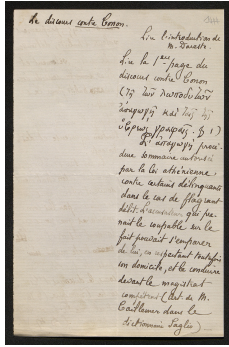 Le discours contre Conon.
Lire l'introduction de
M. Dareste.
Lire la 1ère page du
discours contre Conon
(τῇ τῶν λωποδυτῶν
ἀπαγωγῇ καὶ ταῖς τῆς
ὕβρεως γραφαῖς. § 1)
L' ἀπαγωγή procé-
dure sommaire autorisée
par la loi athénienne
contre certains délinquants
dans le cas de flagrant
délit. L'accusateur qui pre-
nait le coupable sur le
fait pouvait s'emparer
de lui, en respectant toutefois
son domicile, et le conduire
devant le magistrat
compétent (art. de M.
Caillemer dans le
dictionnaire Saglio)